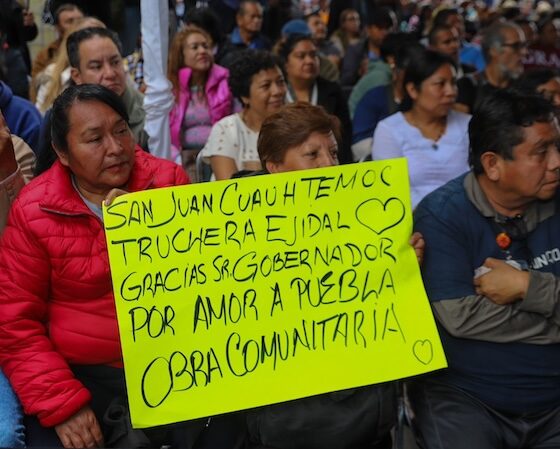 SAN JUAN CUAUHTEMOC
TRUCHERA EJIDAL
GRACIAS SR GOBERNADOR
POR AMOR A PUEBLA
OBRA COMUNITARIA